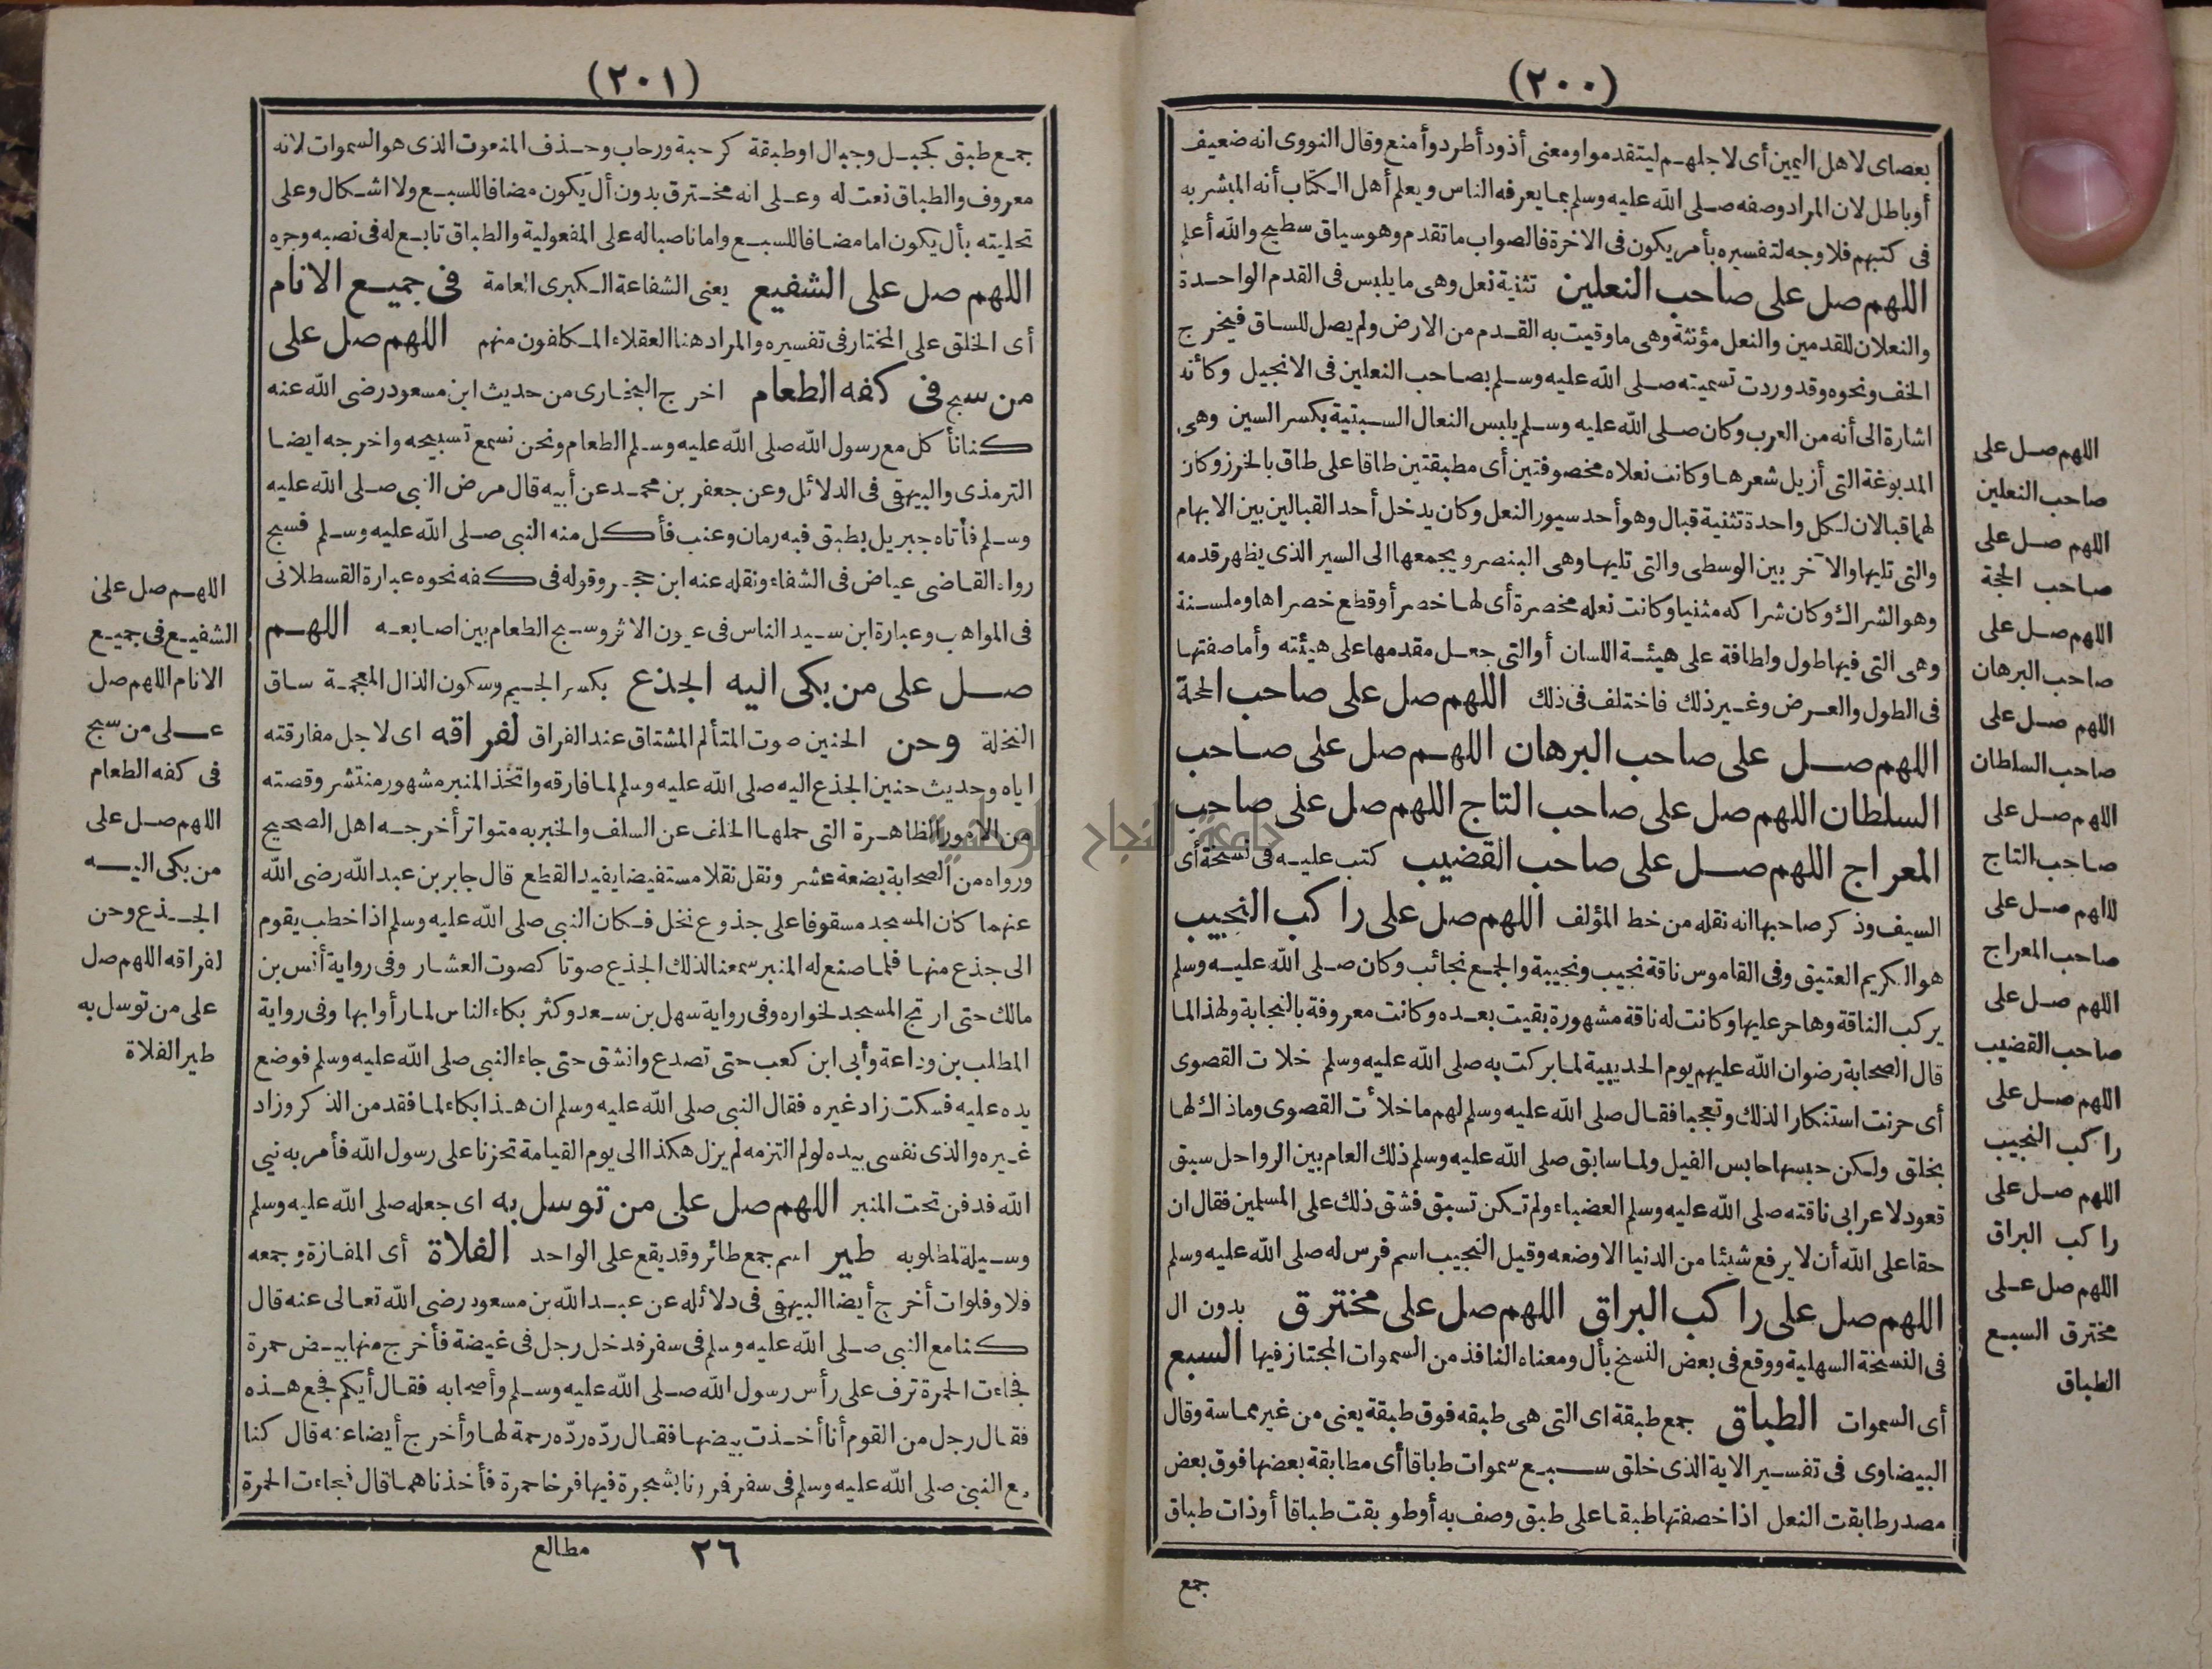 (٢٠٠)
بعصاى لاهل اليمين أى لاجلهم ليتقدموا ومعنى أذود أطرد وأمنع وقال النووى انه ضعيف
أو باطل لان المراد وصفه صلى الله عليه وسلم بما يعرفه الناس ويعلم أهل الكتاب أنه المبشر به
فى كتبهم فلا وجه لتفسيره بأمر يكون فى الاخرة فالصواب ما تقدم وهو سياق سطيح والله أعلم
اللهم صل على صاحب النعلين تثنية نعل وهى ما يلبس فى القدم الواحدة
والنعلان للقدمين والنعل مؤنثة وهى ما وقيت به القدم من الارض ولم يصل للساق فيخرج
الخف ونحوه وقد وردت تسميته صلى الله عليه وسلم بصاحب النعلين فى الانجيل وكأنه
اشارة الى أنه من العرب وكان صلى الله عليه وسلم يلبس النعال السبتية بكسر السين وهى
المدبوغة التى أزيل شعرها وكانت نعلاه مخصوفتين أى مطبقتين طاقا على طاق بالخرز وكان
لهما قبالان لكل واحدة تثنية قبال وهو أحد سيور النعل وكان يدخل أحد القبالين بين الابهام
والتى تليها والآخر بين الوسطى والتى تليها وهى البنصر ويجمعها الى السير الذى يظهر قدمه
وهو الشراك وكان شراكه مثنيا وكانت نعله مخصرة أى لها خصر أو قطع خصراها وملسنة
وهى التى فيها طول ولطافة على هيئة اللسان أو التى جعل مقدمها على هيئته وأما صفتها
فى الطول والعرض وغير ذلك فاختلف فى ذلك اللهم صل على صاحب الحجة
اللهم صل على صاحب البرهان اللهم صل على صاحب
السلطان اللهم صل على صاحب التاج اللهم صل على صاحب
المعراج اللهم صل على صاحب القضيب كتب عليه فى نسخة أى
السيف وذكر صاحبها انه نقله من خط المؤلف اللهم صل على راكب النجيب
هو الكريم العتيق وفى القاموس ناقة نجيب ونجيبة والجمع نجائب وكان صلى الله عليه وسلم
يركب الناقة وهاجر عليها وكانت له ناقة مشهورة بقيت بعده وكانت معروفة بالنجابة ولهذا لما
قال الصحابة رضوان الله عليهم يوم الحديبية لما بركت به صلى الله عليه وسلم خلات القصوى
أى حرنت استنكارا لذلك وتعجبا فقال صلى الله عليه وسلم لهم ما خلأت القصوى وما ذاك لها
بخلق ولكن حبسها حابس الفيل ولما سابق صلى الله عليه وسلم ذلك العام بين الرواحل سبق
قعود لاعرابى ناقته صلى الله عليه وسلم العضباء ولم تكن تسبق فشق ذلك على المسلمين فقال ان
حقا على الله أن لا يرفع شيئا من الدنيا الا وضعه وقيل النجيب اسم فرس له صلى الله عليه وسلم
اللهم صل على راكب البراق اللهم صل على مخترق بدون ال
فى النسخة السهلية ووقع فى بعض النسخ بأل ومعناه النافذ من السموات المجتاز فيها السبع
أى السموات الطباق جمع طبقة اى التى هى طبقه فوق طبقة يعنى من غير مماسة وقال
البيضاوى فى تفسير الاية الذى خلق سبع سموات طباقا أى مطابقة بعضها فوق بعض
مصدر طابقت النعل اذا خصفتها طبقا على طبق وصف به أو طوبقت طباقا أو ذات طباق
جمع
اللهم صل على
صاحب النعلين
اللهم صل على
صاحب الحجة
اللهم صل على
صاحب البرهان
اللهم صل على
صاحب السلطان
اللهم صل على
صاحب التاج
اللهم صل على
صاحب المعراج
اللهم صل على
صاحب القضيب
اللهم صل على
راكب النجيب
اللهم صل على
راكب البراق
اللهم صل على
مخترق السبع
الطباق
(٢٠١)
جمع طبق كجبل وجبال او طبقة كرحبة ورحاب وحذف المنعوت الذى هو السموات لانه
معروف والطباق نعت له وعلى انه مخترق بدون أل يكون مضافا للسبع ولا اشكال وعلى
تحليته بأل يكون اما مضافا للسبع واما ناصبا له على المفعولية والطباق تابع له فى نصبه وجره
اللهم صل على الشفيع يعنى الشفاعة الكبرى العامة فى جميع الانام
أى الخلق على المختار فى تفسيره والمراد هنا العقلاء المكلفون منهم اللهم صل على
من سبح فى كفه الطعام اخرج البخارى من حديث ابن مسعود رضى الله عنه
كنا نأكل مع رسول الله صلى الله عليه وسلم الطعام ونحن نسمع تسبيحه واخرجه ايضا
الترمذى والبيهقى فى الدلائل وعن جعفر بن محمد عن أبيه قال مرض النبى صلى الله عليه
وسلم فأتاه جبريل بطبق فيه رمان وعنب فأكل منه النبى صلى الله عليه وسلم فسبح
رواه القاضى عياض فى الشفاء ونقله عنه ابن حجر وقوله فى كفه نحوه عبارة القسطلانى
فى المواهب وعبارة ابن سيد الناس فى عيون الاثر وسبح الطعام بين اصابعه اللهم
صل على من بكى اليه الجذع بكسر الجيم وسكون الذال المعجمة ساق
النخلة وحن الحنين صوت المتألم المشتاق عند الفراق لفراقه اى لاجل مفارقته
اياه وحديث حنين الجذع اليه صلى الله عليه وسلم لما فارقه واتخذ المنبر مشهور منتشر وقصته
من الامور الظاهرة التى حملها الخلف عن السلف والخبر به متواتر أخرجه اهل الصحيح
ورواه من الصحابة بضعة عشر ونقل نقلا مستفيضا يفيد القطع قال جابر بن عبد الله رضى الله
عنهما كان المسجد مسقوفا على جذوع نخل فكان النبى صلى الله عليه وسلم اذا خطب يقوم
الى جذع منها فلما صنع له المنبر سمعنا لذلك الجذع صوتا كصوت العشار وفى رواية أنس بن
مالك حتى ارتج المسجد لخواره وفى رواية سهل بن سعد وكثر بكاء الناس لما رأوا بها وفى رواية
المطلب بن وداعة وأبى ابن كعب حتى تصدع وانشق حتى جاء النبى صلى الله عليه وسلم فوضع
يده عليه فسكت زاد غيره فقال النبى صلى الله عليه وسلم ان هذا بكاء لما فقد من الذكر وزاد
غيره والذى نفسى بيده لو لم التزمه لم يزل هكذا الى يوم القيامة تحزنا على رسول الله فأمر به نبى
الله فدفن تحت المنبر اللهم صل على من توسل به اى جعله صلى الله عليه وسلم
وسيلة لمطلوبه طير اسم جمع طائر وقد يقع على الواحد الفلاة أى المفازة وجمعه
فلا وفلوات أخرج أيضا البيهقى فى دلائله عن عبد الله بن مسعود رضى الله تعالى عنه قال
كنا مع النبى صلى الله عليه وسلم فى سفر فدخل رجل فى غيضة فأخرج منها بيض حمرة
فجاءت الحمرة ترف على رأس رسول الله صلى الله عليه وسلم وأصحابه فقال أيكم فجع هذه
فقال رجل من القوم أنا أخذت بيضها فقال ردّه ردّه رحمة لها وأخرج أيضا عنه قال كنا
مع النبى صلى الله عليه وسلم فى سفر فمررنا بشجرة فيها فرخا حمرة فأخذناهما قال فجاءت الحمرة
٢٦ مطالع
اللهم صل على
الشفيع فى جميع
الانام اللهم صل
على من سبح
فى كفه الطعام
اللهم صل على
من بكى اليه
الجذع وحن
لفراقه اللهم صل
على من توسل به
طير الفلاة
جامعة النجاح الوطنية